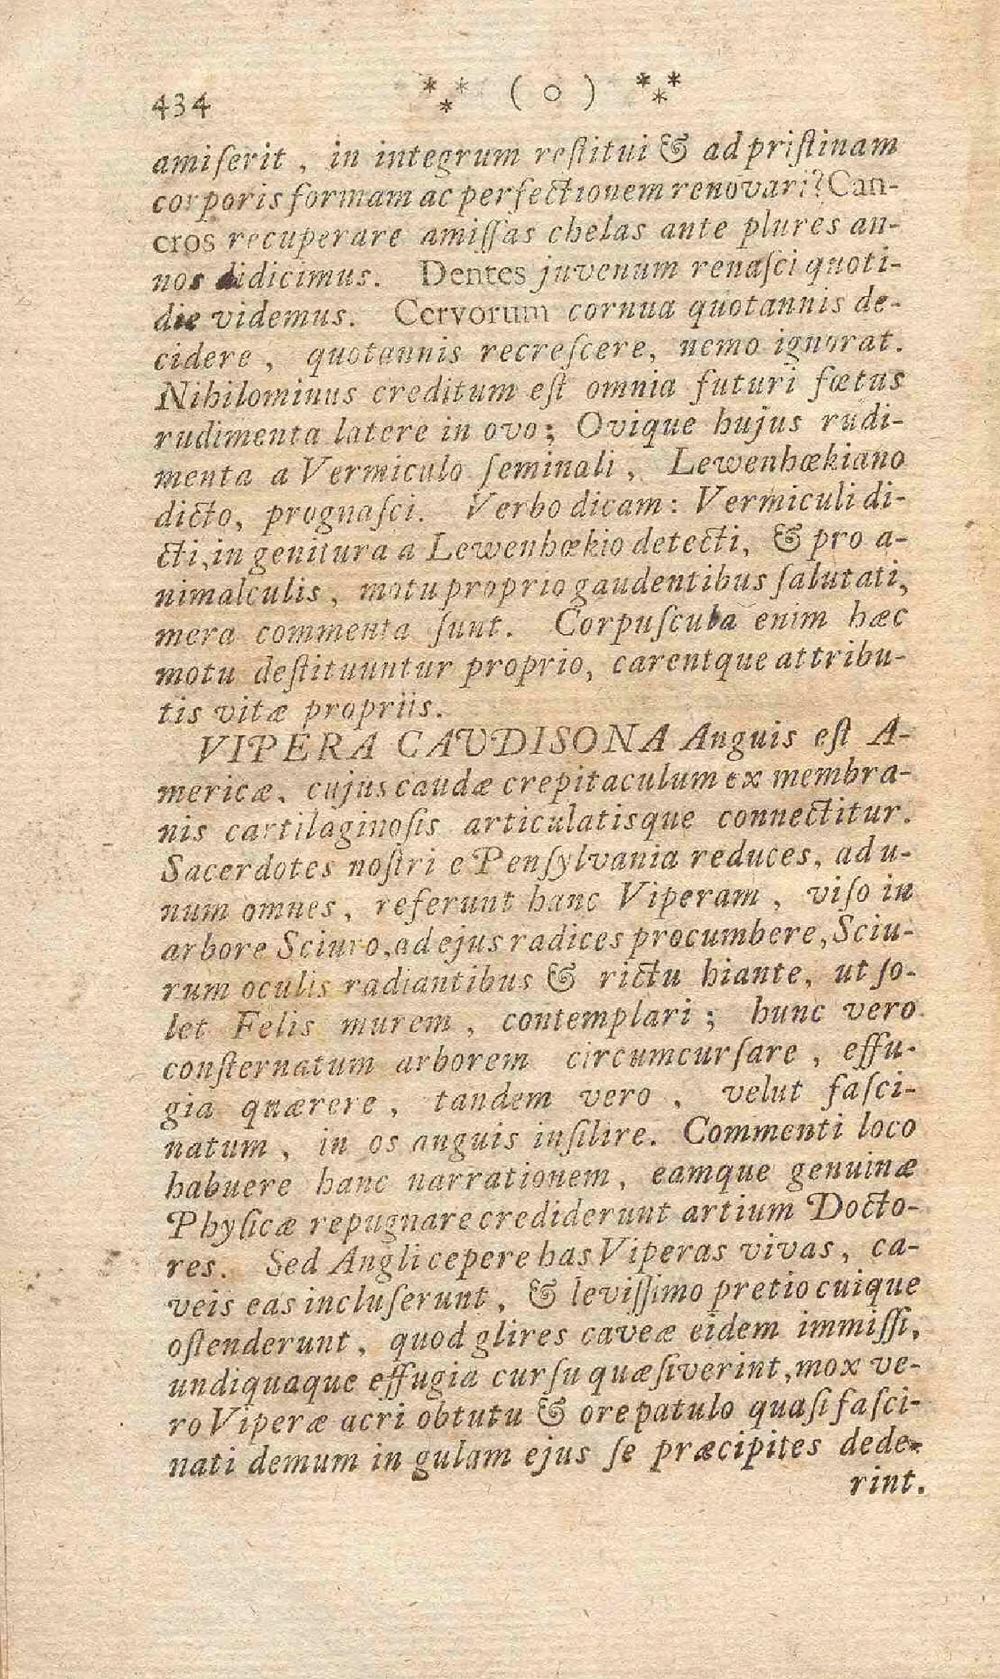 434 ⁂ ( o ) ⁂
amiſerit , in integrum reſtitui & ad priſtinam
corporis formam ac perfectionem renovari? Can-
cros recuperare amiſſas chelas ante plures an-
nos didicimus. Dentes juvenum renaſci quoti-
die videmus. Cervorum cornua quotannis de-
cidere , quotannis recreſcere, nemo ignorat.
Nihilominus creditum eſt omnia futuri fœtus
rudimenta latere in ovo; Ovique hujus rudi-
menta a Vermiculo ſeminali , Lewenhœkiano
dicto, prognaſci. Verbo dicam: Vermiculi di-
cti, in genitura a Lewenhœkio detecti, & pro a-
nimalculis , motu proprio gaudentibus ſalutati,
mera commenta ſunt. Corpuſcula enim hæc
motu deſtituuntur proprio, carentque attribu-
tis vitæ propriis.
VIPERA CAUDISONA Anguis eſt A-
mericæ, cujus caudæ crepitaculum ex membra-
nis cartilaginoſis articulatisque connectitur.
Sacerdotes noſtri e Penſylvania reduces, ad u-
num omnes , referunt hanc Viperam , viſo in
arbore Sciuro, ad ejus radices procumbere, Sciu-
rum oculis radiantibus & rictu hiante, ut ſo-
let Felis murem , contemplari ; hunc vero
conſternatum arborem circumcurſare , effu-
gia quærere , tandem vero , velut faſci-
natum , in os anguis inſilire. Commenti loco
habuere hanc narrationem , eamque genuinæ
Phyſicæ repugnare crediderunt artium Docto-
res. Sed Angli cepere has Viperas vivas, ca-
veis eas incluſerunt , & leviſſimo pretio cuique
oſtenderunt , quod glires caveæ eidem immiſſi,
undiquaque effugia curſu quæſiverint, mox ve-
ro Viperæ acri obtutu & ore patulo quaſi faſci-
nati demum in gulam ejus ſe præcipites dede-
rint.